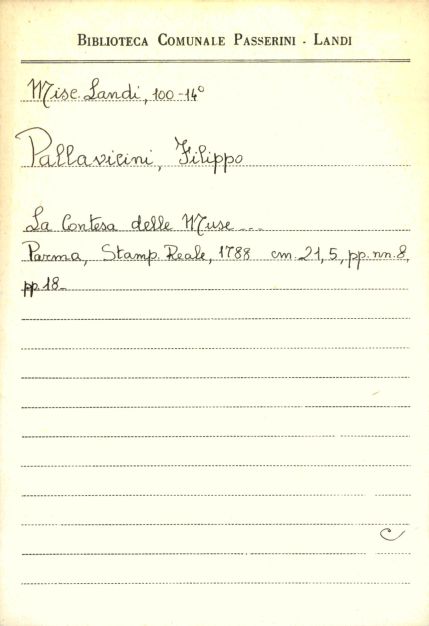 BIBLIOTECA COMUNALE PASSERINI - LANDI
Misc. Landi, 100-14°
Pallavicini, Filippo
La Contesa delle Muse ...
Parma, Stamp. Reale, 1788 cm. 21,5, pp. nn. 8,
pp. 18_
C